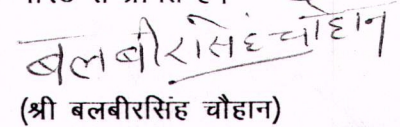 बलबीरसिंह चौहान
(श्री बलबीरसिंह चौहान)